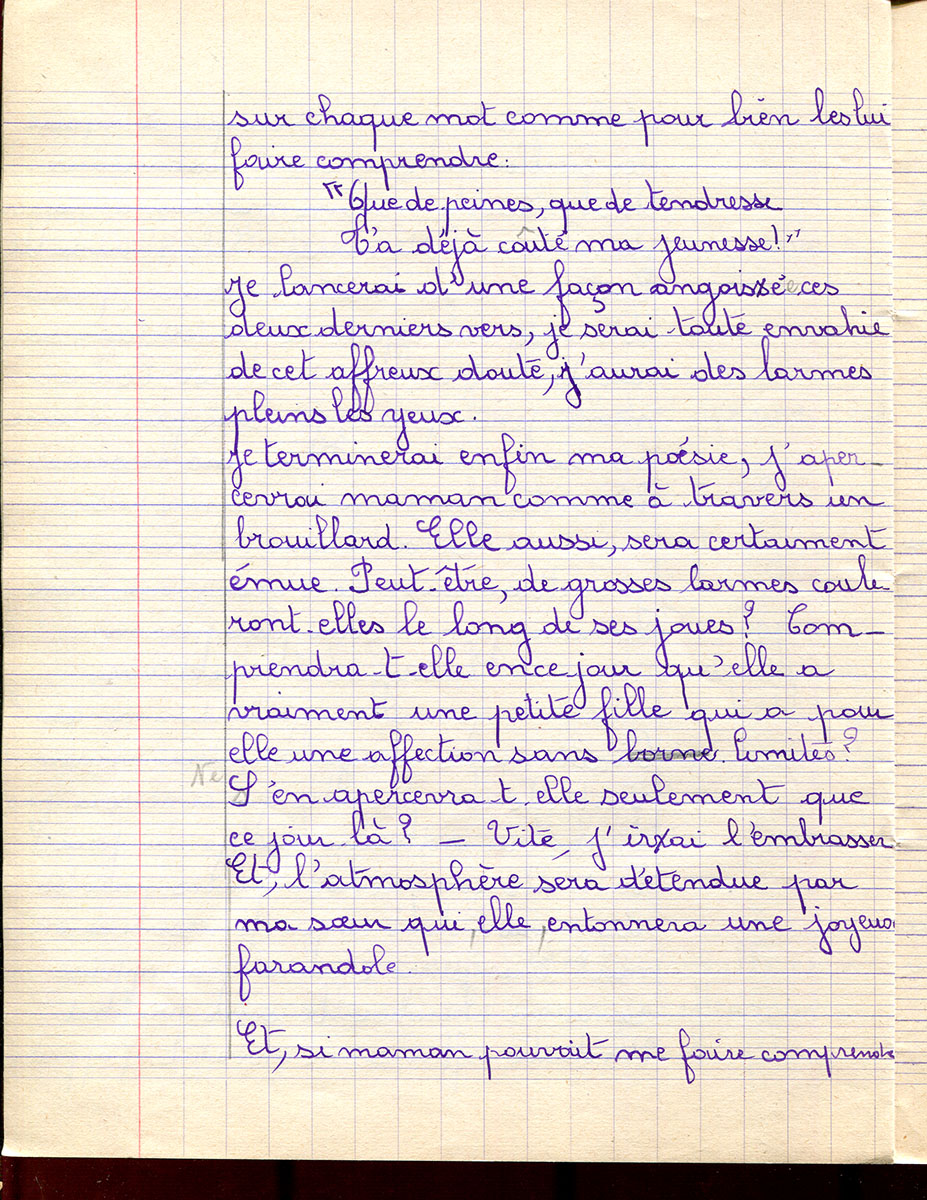 sur chaque mot comme pour bien les lui
faire comprendre.
"Que de peines, que de tendresse
T'a déjà coûté ma jeunesse!"
Je lancerai d'une façon angoissée ces
deux derniers vers, je serai toute envahie
de cet affreux doute, j'aurai des larmes
pleins les yeux.
Je terminerai enfin ma poésie, j'aper-
cevrai maman comme à travers un
brouillard. Elle aussi, sera certaiment
émue. Peut-être, de grosses larmes coule-
ront-elles le long de ses joues? Com-
prendra-t-elle en ce jour qu'elle a
vraiment une petite fille qui a pour
elle une affection sans borne limites?
Ne
S'en apercevra-t-elle seulement que
ce jour là? - Vite, j'irai l'embrasser
Et, l'atmosphère sera détendue par
ma sœur qui, elle, entonnera une joyeu
farandole.
Et, si maman pouvait me faire comprendre